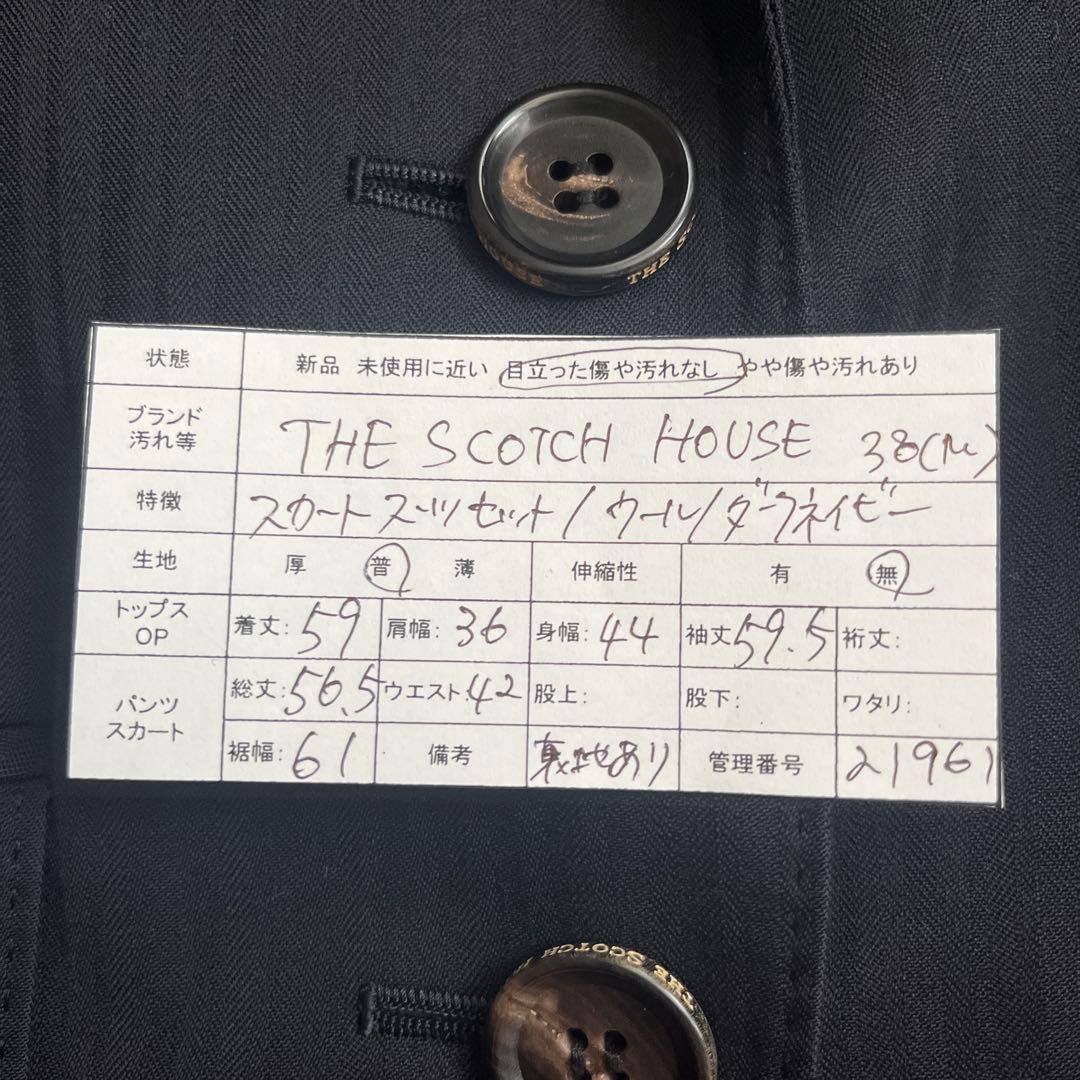 HOUSE THE SC
状態 新品 未使用に近い 目立った傷や汚れなし やや傷や汚れあり
ブランド
汚れ等 THE SCOTCH HOUSE 38(M)
特徴 スカートスーツセット/ウール/ダークネイビー
生地 厚 普 薄 伸縮性 有 無
トップス
OP 着丈:59 肩幅:36 身幅:44 袖丈59.5 裄丈:
パンツ
スカート 総丈:56.5 ウエスト:42 股上: 股下: ワタリ:
裾幅:61 備考 裏地あり 管理番号 21961
THE SCOTCH